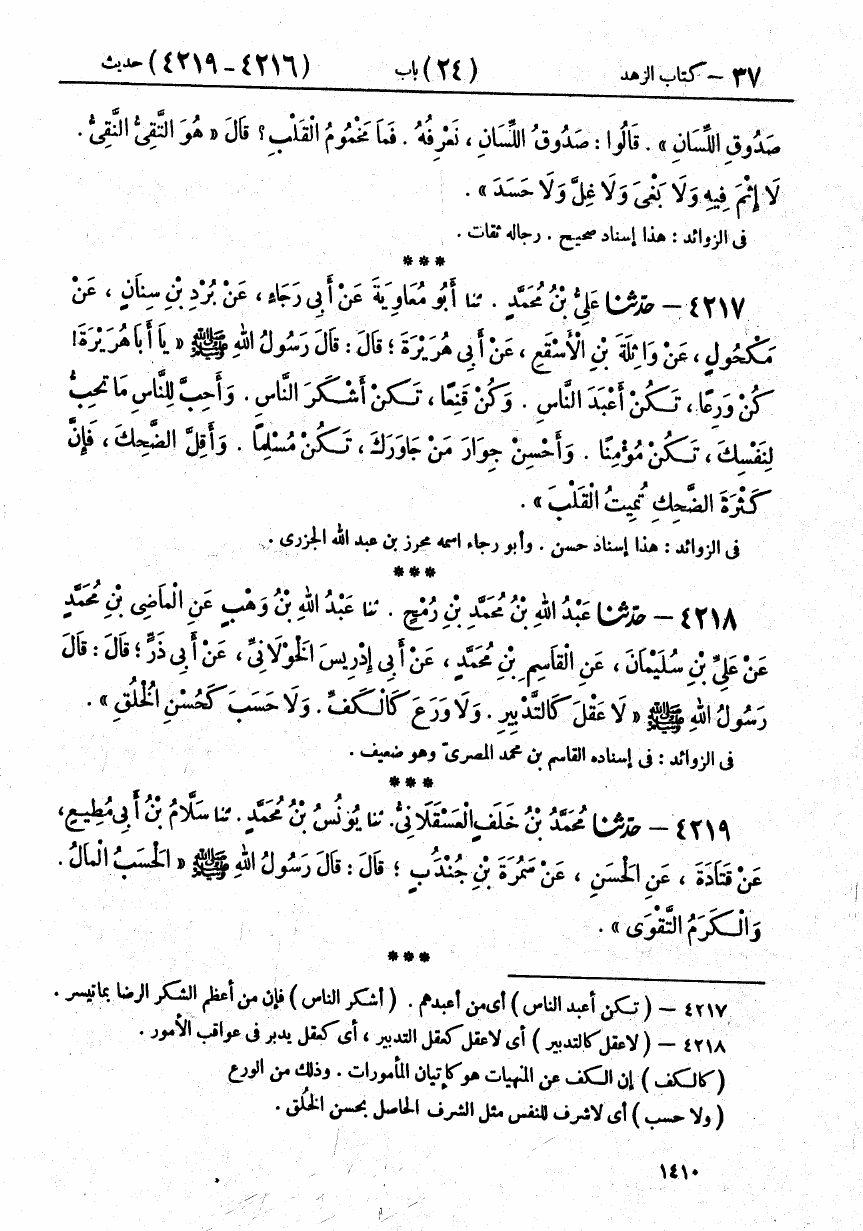 ٣٧ – كتاب الزهد (٢٤) باب (٤٢١٦ – ٤٢١٩) حديث
صَدُوقِ اللِّسَانِ » . قَالُوا : صَدُوقُ اللِّسَانِ ، نَعْرِفُهُ . فَمَا مَخْمُومُ الْقَلْبِ ؟ قَالَ « هُوَ التَّقِىُّ النَّقِىُّ .
لَا إِثْمَ فِيهِ وَلَا بَغْىَ وَلَا غِلَّ وَلَا حَسَدَ » .
فى الزوائد : هذا إسناد صحيح . رجاله ثقات .
***
٤٢١٧ – حدّثنا عَلِىُّ بْنُ مُحَمَّدٍ . ثنا أَبُو مُعَاوِيَةَ عَنْ أَبِى رَجَاءٍ ، عَنْ بُرْدِ بْنِ سِنَانٍ ، عَنْ
مَكْحُولٍ ، عَنْ وَاثِلَةَ بْنِ الْأَسْقَعِ ، عَنْ أَبِى هُرَيْرَةَ ؛ قَالَ : قَالَ رَسُولُ اللهِ ﷺ « يَا أَبَا هُرَيْرَةَ !
كُنْ وَرِعًا ، تَكُنْ أَعْبَدَ النَّاسِ . وَكُنْ قَنِعًا ، تَكُنْ أَشْكَرَ النَّاسِ . وَأَحِبَّ لِلنَّاسِ مَا تُحِبُّ
لِنَفْسِكَ ، تَكُنْ مُؤْمِنًا . وَأَحْسِنْ جِوَارَ مَنْ جَاوَرَكَ ، تَكُنْ مُسْلِمًا . وَأَقِلَّ الضَّحِكَ ، فَإِنَّ
كَثْرَةَ الضَّحِكِ تُمِيتُ الْقَلْبَ » .
فى الزوائد : هذا إسناد حسن . وأبو رجاء اسمه محرز بن عبد الله الجزرى .
***
٤٢١٨ – حدّثنا عَبْدُ اللهِ بْنُ مُحَمَّدِ بْنِ رُمْحٍ . ثنا عَبْدُ اللهِ بْنُ وَهْبٍ عَنِ الْمَاضِى بْنِ مُحَمَّدٍ
عَنْ عَلِىِّ بْنِ سُلَيْمَانَ ، عَنِ الْقَاسِمِ بْنِ مُحَمَّدٍ ، عَنْ أَبِى إِدْرِيسَ الْخَوْلَانِىِّ ، عَنْ أَبِى ذَرٍّ ؛ قَالَ : قَالَ
رَسُولُ اللهِ ﷺ « لَا عَقْلَ كَالتَّدْبِيرِ . وَلَا وَرَعَ كَالْكَفِّ . وَلَا حَسَبَ كَحُسْنِ الْخُلُقِ » .
فى الزوائد : فى إسناده القاسم بن محمد المصرىّ وهو ضعيف .
***
٤٢١٩ – حدّثنا مُحَمَّدُ بْنُ خَلَفٍ الْعَسْقَلَانِىُّ . ثنا يُونُسُ بْنُ مُحَمَّدٍ . ثنا سَلَّامُ بْنُ أَبِى مُطِيعٍ ،
عَنْ قَتَادَةَ ، عَنِ الْحَسَنِ ، عَنْ سَمُرَةَ بْنِ جُنْدُبٍ ؛ قَالَ : قَالَ رَسُولُ اللهِ ﷺ « الْحَسَبُ الْمَالُ .
وَالْكَرَمُ التَّقْوَى » .
***
٤٢١٧ – ( تكن أعبد الناس ) أى من أعبدهم . ( أشكر الناس ) فإن من أعظم الشكر الرضا بما تيسر .
٤٢١٨ – ( لا عقل كالتدبير ) أى لا عقل كعقل التدبير ، أى كعقل يدبر فى عواقب الأمور .
( كالكف ) إن الكف عن المنهيات هو كإتيان المأمورات . وذلك من الورع
( ولا حسب ) أى لا شرف للنفس مثل الشرف الحاصل بحسن الخُلق .
١٤١٠